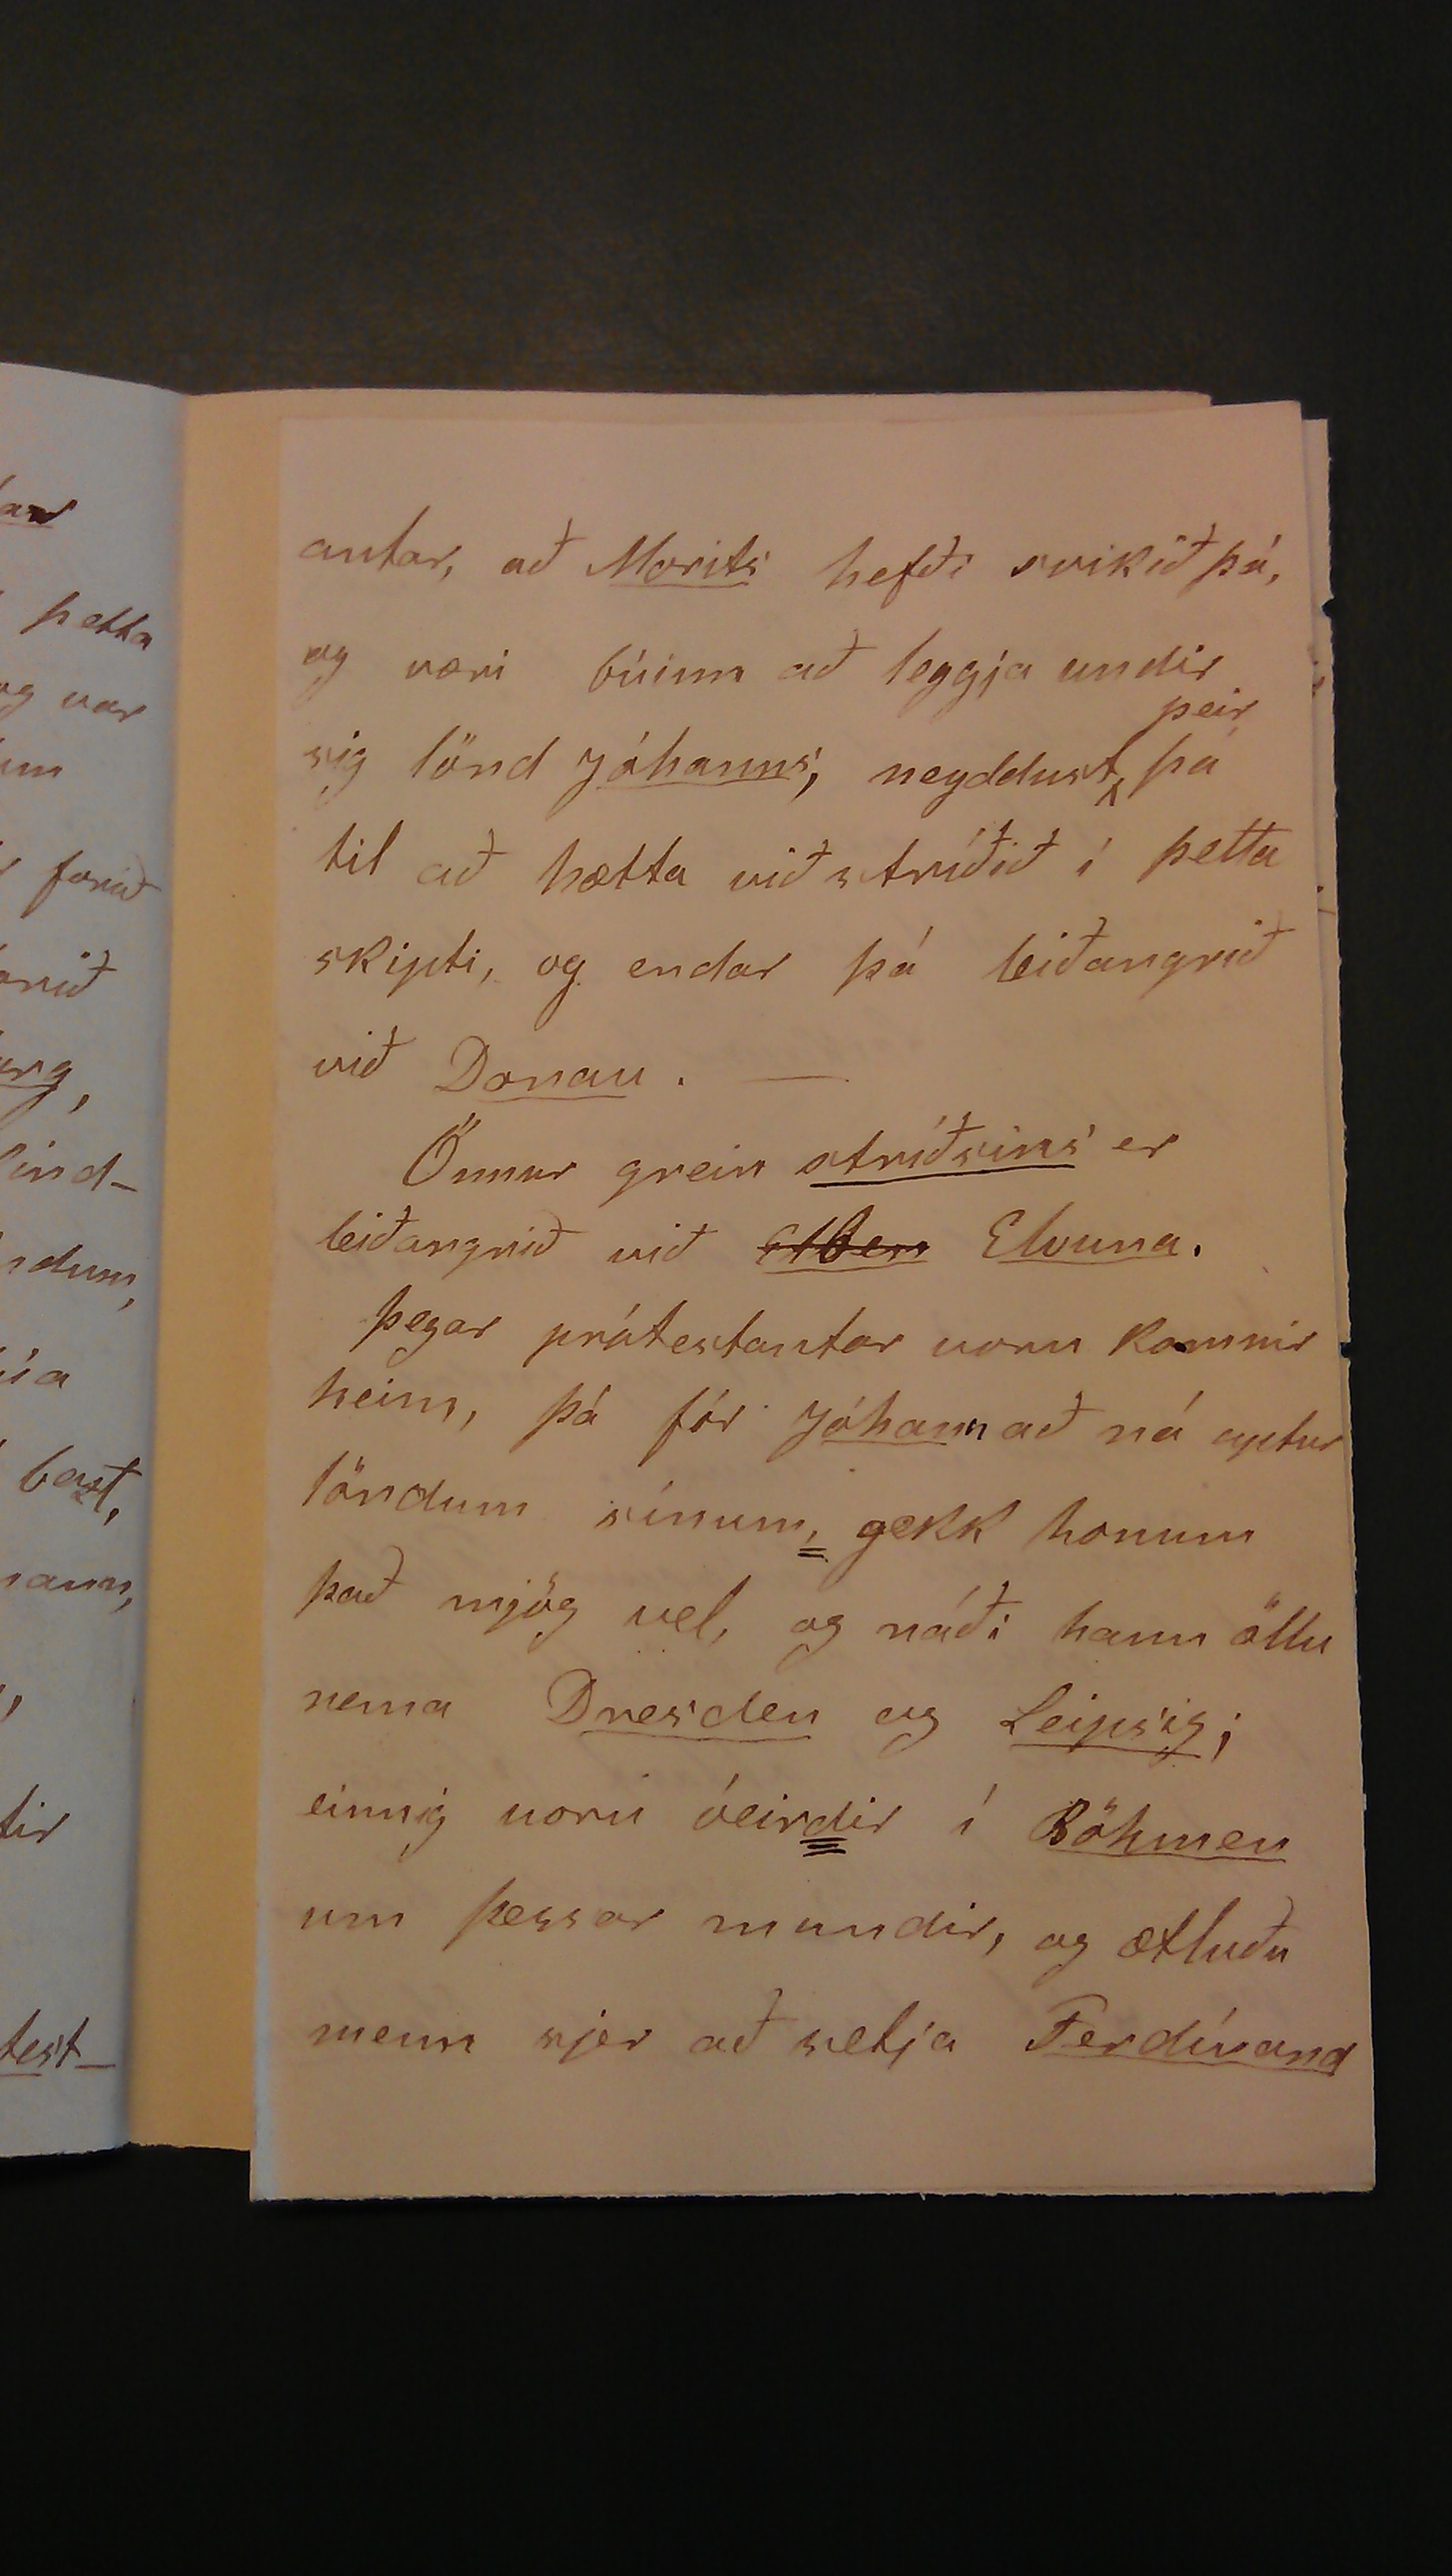 þetta
og var
ind-
ndum,
bazt,
mann,
tir
test-
antar, að Morits hefði svikið þá,
og væri búinn að leggja undir
þeir
sig lönd Jóhanns, neyddust þá
til að hætta við stríðið í þetta
skipti, og endar þá leiðangrið
við Donau. —
Önnur grein stríðsins er
leiðangrið við Elben Elvuna.
Þegar prótestantar voru komnir
heim, þá fór Jóhann að ná aptur
löndum sínum, gekk honum
það mjög vel, og náði hann öllu
nema Dresden og Leipsig;
einnig voru óeirdir í Böhmen
um þessar mundir, og ætluðu
menn sjer að setja Ferdínand